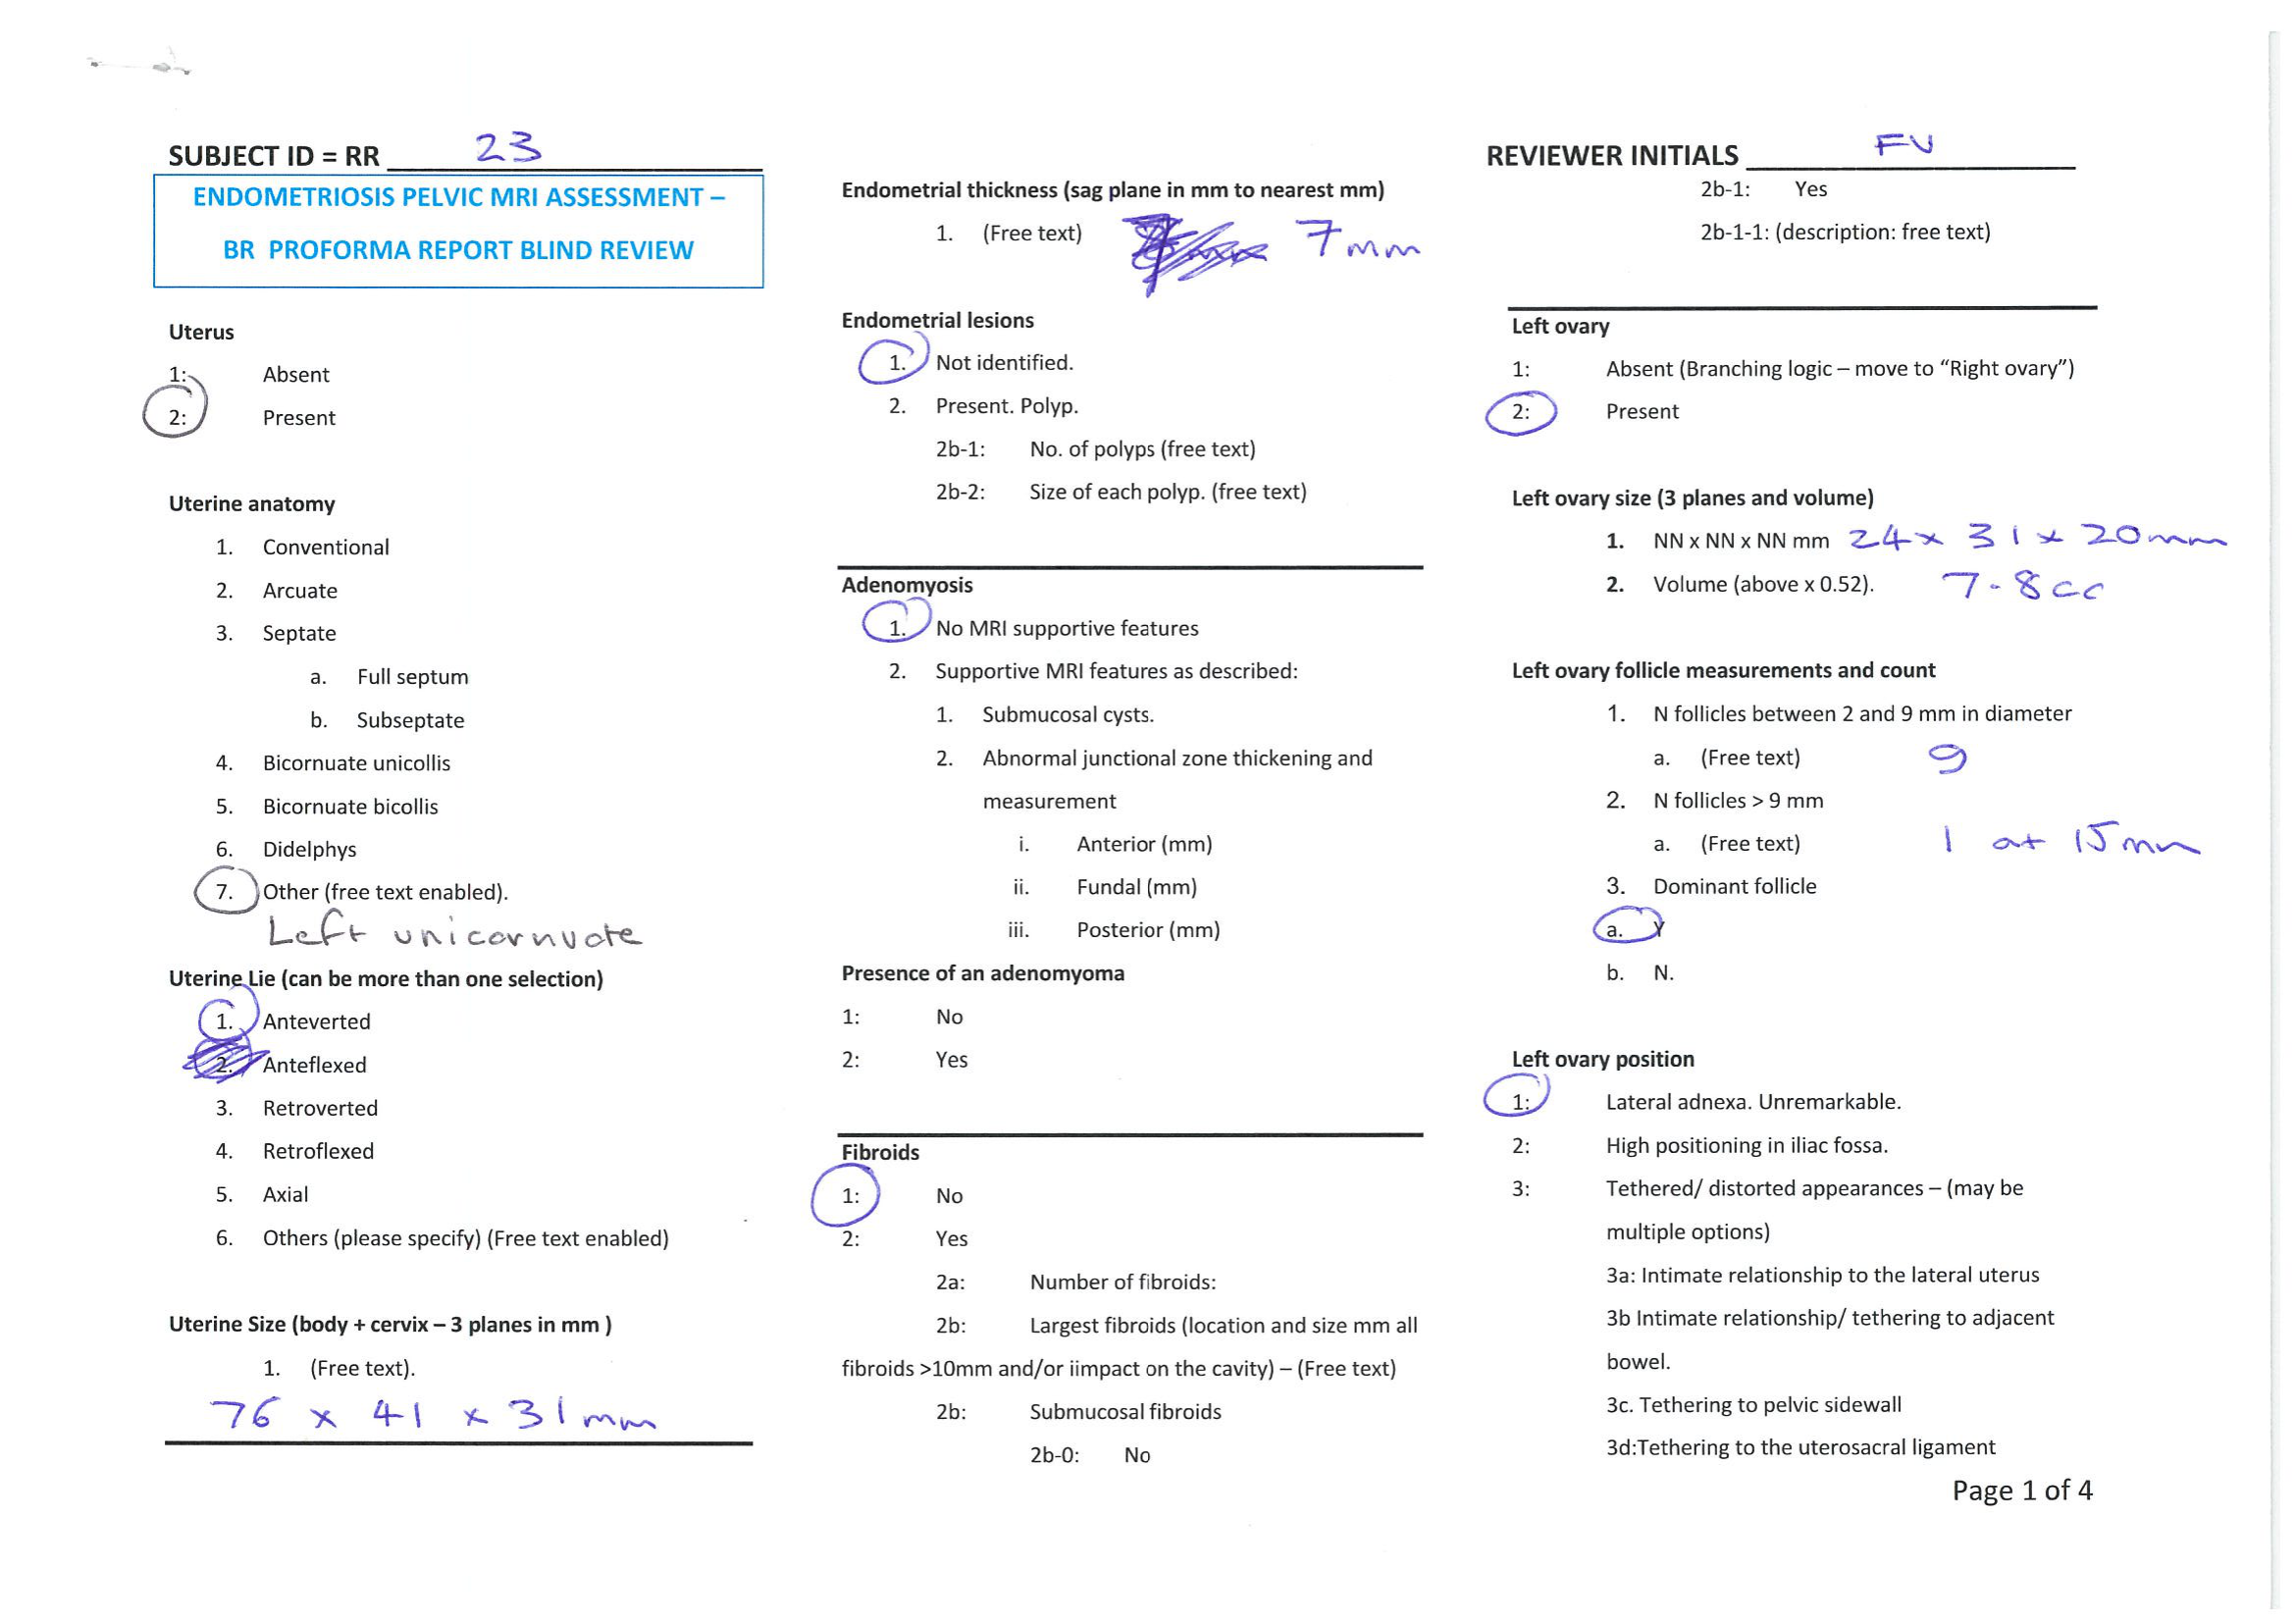 SUBJECT ID = RR 23
ENDOMETRIOSIS PELVIC MRI ASSESSMENT –
BR PROFORMA REPORT BLIND REVIEW
Uterus
1: Absent
2: Present
Uterine anatomy
1. Conventional
2. Arcuate
3. Septate
a. Full septum
b. Subseptate
4. Bicornuate unicollis
5. Bicornuate bicollis
6. Didelphys
7. Other (free text enabled).
Left unicornuate
Uterine Lie (can be more than one selection)
1. Anteverted
2. Anteflexed
3. Retroverted
4. Retroflexed
5. Axial
6. Others (please specify) (Free text enabled)
Uterine Size (body + cervix – 3 planes in mm )
1. (Free text).
76 x 41 x 31mm
Endometrial thickness (sag plane in mm to nearest mm)
1. (Free text) 7mm
Endometrial lesions
1. Not identified.
2. Present. Polyp.
2b-1: No. of polyps (free text)
2b-2: Size of each polyp. (free text)
Adenomyosis
1. No MRI supportive features
2. Supportive MRI features as described:
1. Submucosal cysts.
2. Abnormal junctional zone thickening and
measurement
i. Anterior (mm)
ii. Fundal (mm)
iii. Posterior (mm)
Presence of an adenomyoma
1: No
2: Yes
Fibroids
1: No
2: Yes
2a: Number of fibroids:
2b: Largest fibroids (location and size mm all
fibroids >10mm and/or iimpact on the cavity) – (Free text)
2b: Submucosal fibroids
2b-0: No
REVIEWER INITIALS FV
2b-1: Yes
2b-1-1: (description: free text)
Left ovary
1: Absent (Branching logic – move to “Right ovary”)
2: Present
Left ovary size (3 planes and volume)
1. NN x NN x NN mm 24x 31 x 20mm
2. Volume (above x 0.52). 7.8cc
Left ovary follicle measurements and count
1. N follicles between 2 and 9 mm in diameter
a. (Free text) 9
2. N follicles > 9 mm
a. (Free text) 1 at 15mm
3. Dominant follicle
a. Y
b. N.
Left ovary position
1: Lateral adnexa. Unremarkable.
2: High positioning in iliac fossa.
3: Tethered/ distorted appearances – (may be
multiple options)
3a: Intimate relationship to the lateral uterus
3b Intimate relationship/ tethering to adjacent
bowel.
3c. Tethering to pelvic sidewall
3d:Tethering to the uterosacral ligament
Page 1 of 4